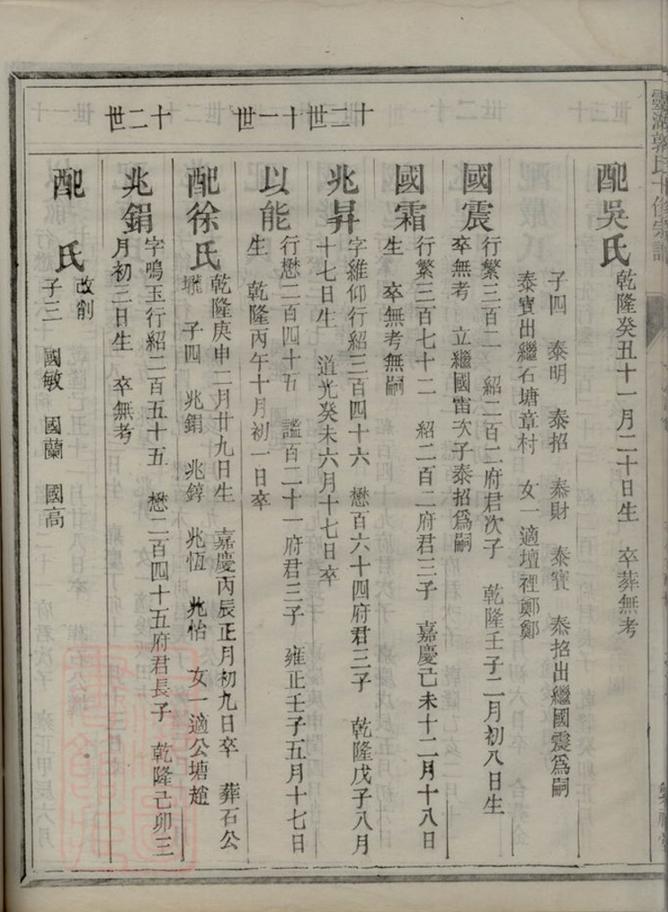 配吳氏
乾隆癸丑十一月二十日生　卒葬無考
子四　泰明　泰招　泰財　泰寶　泰招出繼國震爲嗣
泰寶出繼石塘章村　女一適壇裡鄭鄭
國震
行繁三百二　紹二百二府君次子　乾隆壬子二月初八日生
卒無考　立繼國雷次子泰招爲嗣
國霜
行繁三百七十二　紹二百二府君三子　嘉慶己未十二月十八日
生　卒無考無嗣
十二世
兆昇
字維仰行紹三百四十六　懋百六十四府君三子　乾隆戊子八月
十七日生　道光癸未六月十七日卒
十一世
以能
行懋二百四十五　謐百二十一府君三子　雍正壬子五月十七日
生　乾隆丙午十月初一日卒
配徐氏
乾隆庚申二月廿九日生　嘉慶丙辰正月初九日卒　葬石公
壠　子四　兆鋗　兆錞　兆恆　兆怡　女一適公塘趙
十二世
兆鋗
字鳴玉行紹二百五十五　懋二百四十五府君長子　乾隆己卯三
月初三日生　卒無考
配　氏
改削
子三　國敏　國蘭　國高